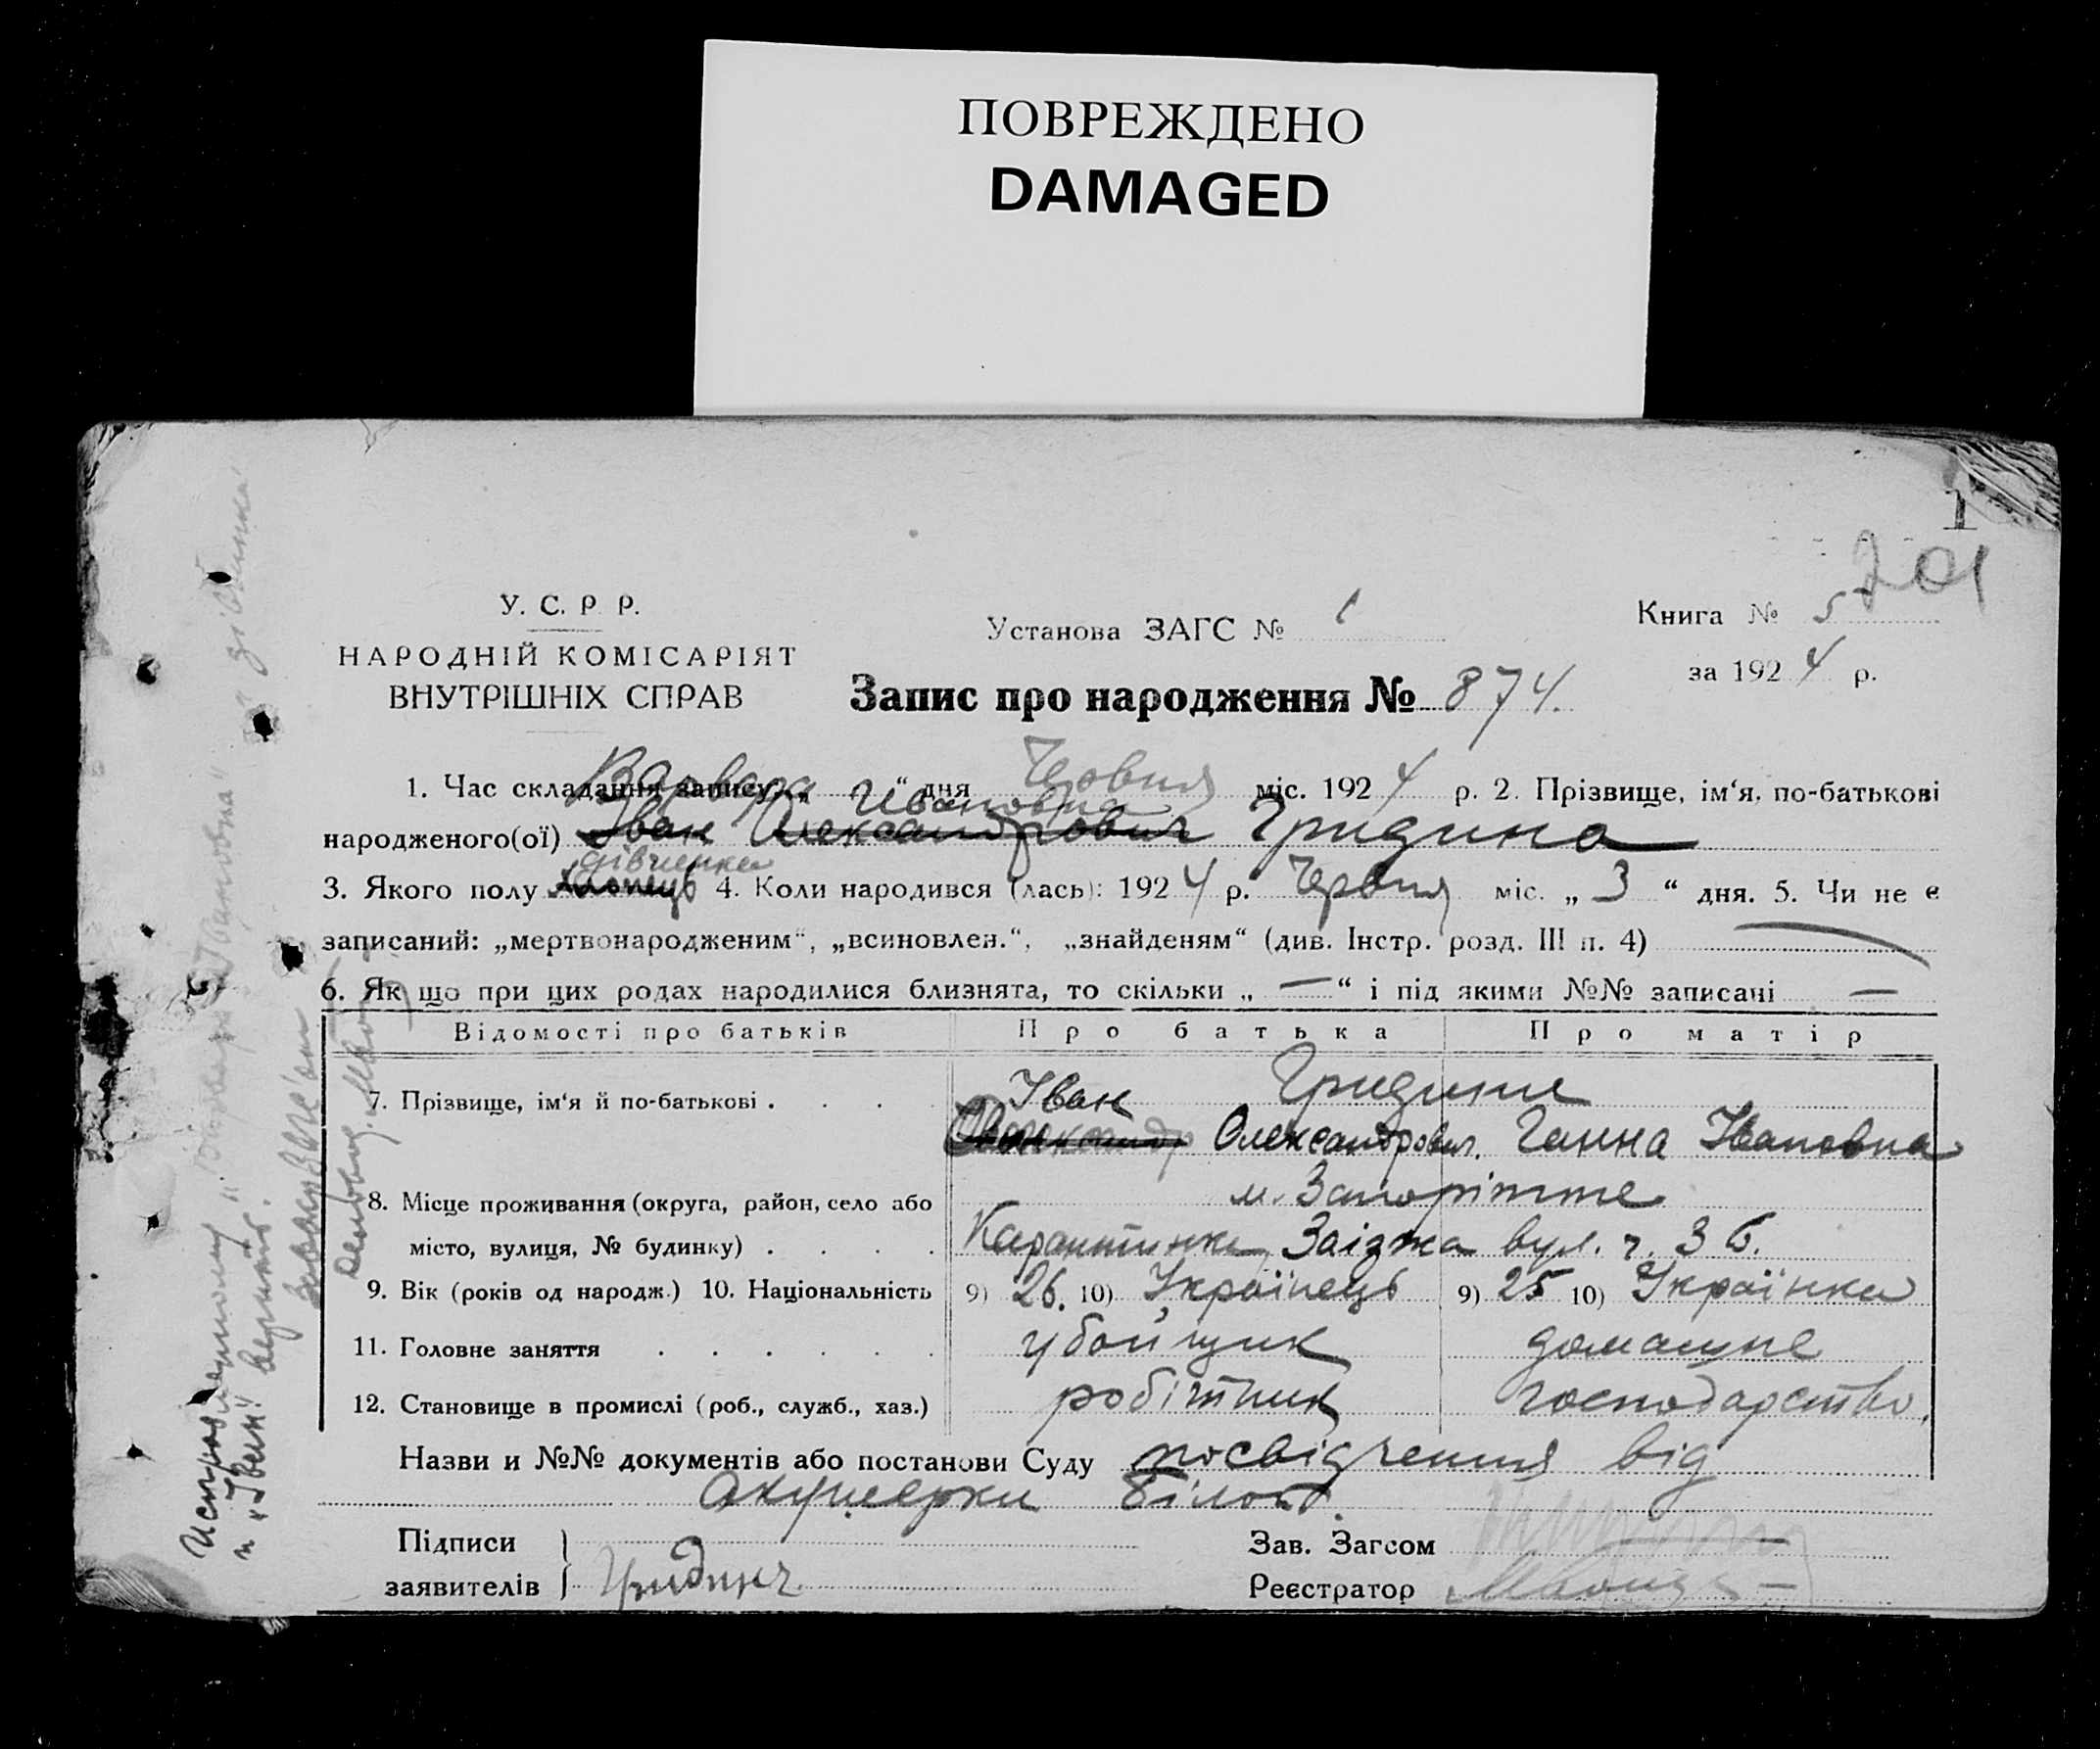 ПОВРЕЖДЕНО
DAMAGED
1
201
У. С. Р. Р.
НАРОДНІЙ КОМІСАРІЯТ
ВНУТРІШНІХ СПРАВ
Установа ЗАГС № 1
Книга № 5
за 1924 р.
Запис про народження № 874.
1. Час складання запису „ “ дня Червня міс. 1924 р. 2. Прізвище, ім‘я, по-батькові
Варвара Ивановна
народженого(ої) Іван Олександрович Гридина
дівчинка
3. Якого полу хлопець 4. Коли народився (лась): 1924 р. Червня міс. „ 3 “ дня. 5. Чи не є
записаний: „мертвонародженим“, „всиновлен.“, „знайденям“ (див. Інстр. розд. III п. 4) —
6. Як що при цих родах народилися близнята, то скільки „ — “ і під якими №№ записані —
Відомості про батьків Про батька Про матір
7. Прізвище, ім‘я й по-батькові . . . . Іван Гридини
Олександрович. Ганна Івановна
8. Місце проживання (округа, район, село або м. Запоріжже
місто, вулиця, № будинку) . . . . Карантинка, Заізжа вул. ч. 36.
9. Вік (років од народж.) 10. Національність 9) 26. 10) Українець 9) 25 10) Українка
11. Головне заняття . . . . . . убойщик домашнє
12. Становище в промислі (роб., служб., хаз.) робітник господарство.
Назви и №№ документів або постанови Суду посвідчення від
Акушерки Білой.
Підписи
заявителів } Гридин
Зав. Загсом
Реєстратор
Исправленному „Варвара Івановна“ „дівчинка“
и „Іван“ верить.